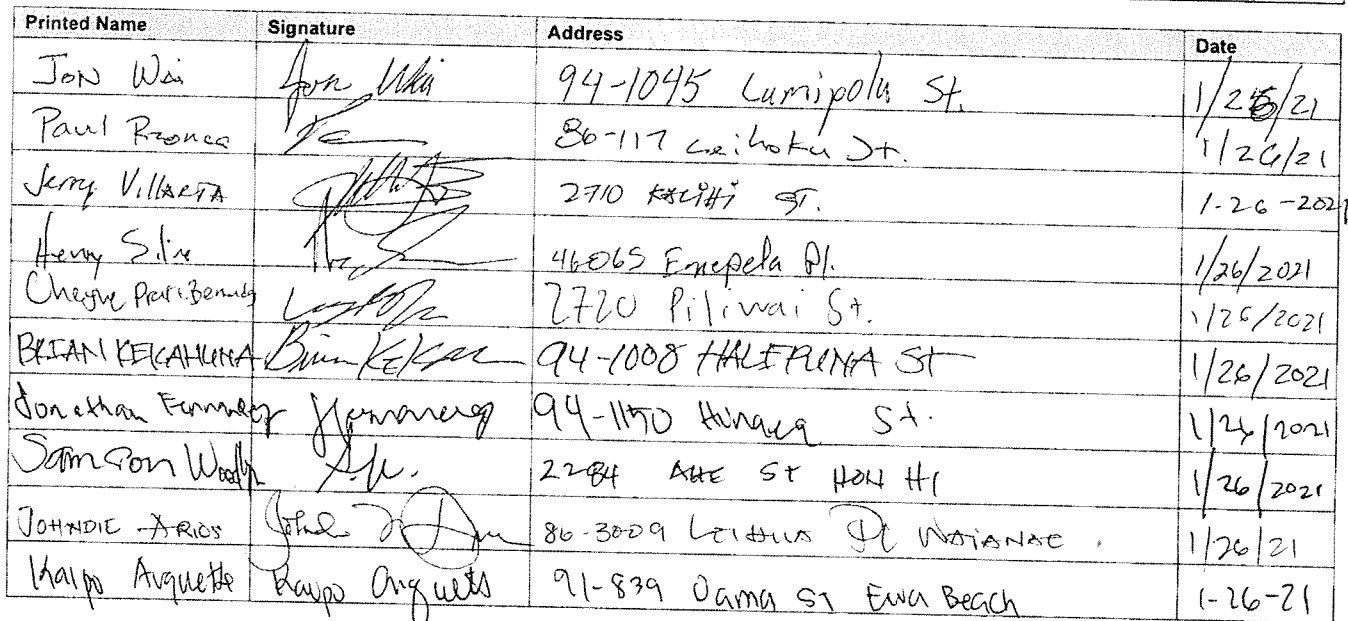 Printed Name Signature Address Date
Jon Wai Jon Wai 94-1045 Lumipolu St. 1/26/21
Paul 86-117 Leihoku St. 1/26/21
Jerry Villarta 2710 Kalihi St. 1-26-2021
Henry Silva 46065 Emepela Pl. 1/26/2021
2720 Piliwai St. 1/26/2021
BRIAN KEKAHUNA Brian 94-1008 HALEPUNA ST 1/26/2021
Jonathan 94-1150 St. 1/26/2021
Samson 2284 AHE ST HON HI 1/26/2021
JOHNDIE ARIOS 86-3009 LEIHUA Pl WAIANAE. 1/26/21
Kaipo Arquette Kaipo Arquette 91-839 Oama ST Ewa Beach 1-26-21